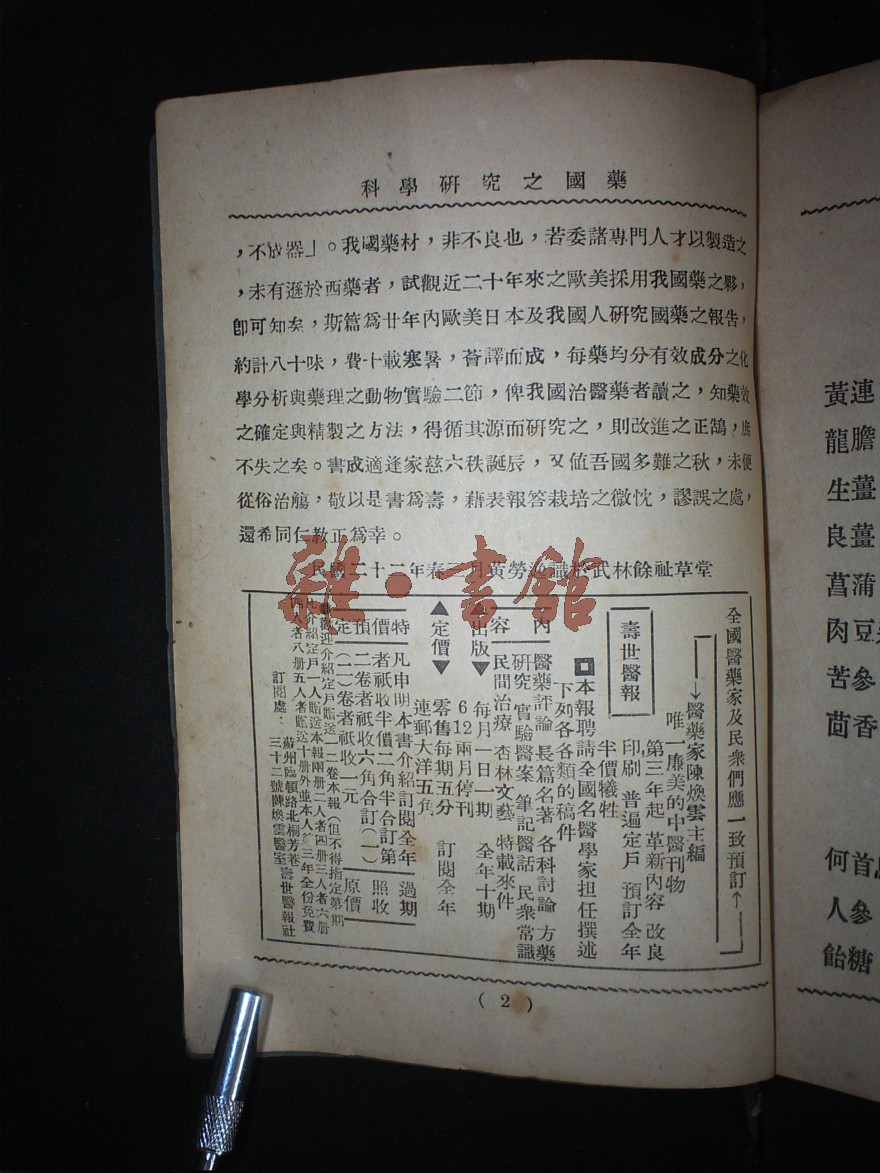 科學研究之國藥
，不成器」。我國藥材，非不良也，若委諸專門人才以製造之
，未有遜於西藥者，試觀近二十年來之歐美採用我國藥之夥，
卽可知矣，斯篇爲廿年內歐美日本及我國人研究國藥之報告，
約計八十味，費十載寒暑，薈譯而成，每藥均分有效成分之化
學分析與藥理之動物實驗二節，俾我國治醫藥者讀之，知藥效
之確定與精製之方法，得循其源而研究之，則改進之正鵠，庶
不失之矣。書成適逢家慈六秩誕辰，又值吾國多難之秋，未便
從俗治觴，敬以是書爲壽，藉表報答栽培之微忱，謬誤之處，
還希同仁敎正爲幸。
民國二十二年春二月黃勞逸識於武林餘祉草堂
雜·書館
全國醫藥家及民衆們應一致預訂↑
→醫藥家陳煥雲主編
唯一廉美的中醫刊物
壽世醫報
第三年起 革新內容 改良
印刷 普遍定戶 預訂全年
半價犧牲
本報聘請全國名醫學家担任撰述
下列各各類的稿件
內容
醫藥評論 長篇名著 各科討論 方藥
研究 實驗醫案 筆記醫話 民衆常識
民間治療 杏林文藝 特載來件
▲出版▼
每月一日一期 全年十期
6 12兩月停刊
▲定價▼
零售每期五分 訂閱全年
連郵大洋五角
特價預定
凡申明本書介紹訂閱全年
者祇收半價二角半合訂第
二卷者祇收六角合訂(一)
(二)卷者祇收一元
過期
照收
原價
歡迎介紹定戶贈送一二卷本報(但不得指定第期
凡介紹定戶一人贈送本報兩册二人者四册三人者六册
四人者八册五人者贈送十册外並本人第三年全份免費
訂閱處：蘇州臨頓路北桐芳巷壽世醫報社
三十二號陳煥雲醫室
( 2 )
黃連
龍膽
生薑
良薑
菖蒲
肉豆
苦參
茴香
何首
人參
飴糖